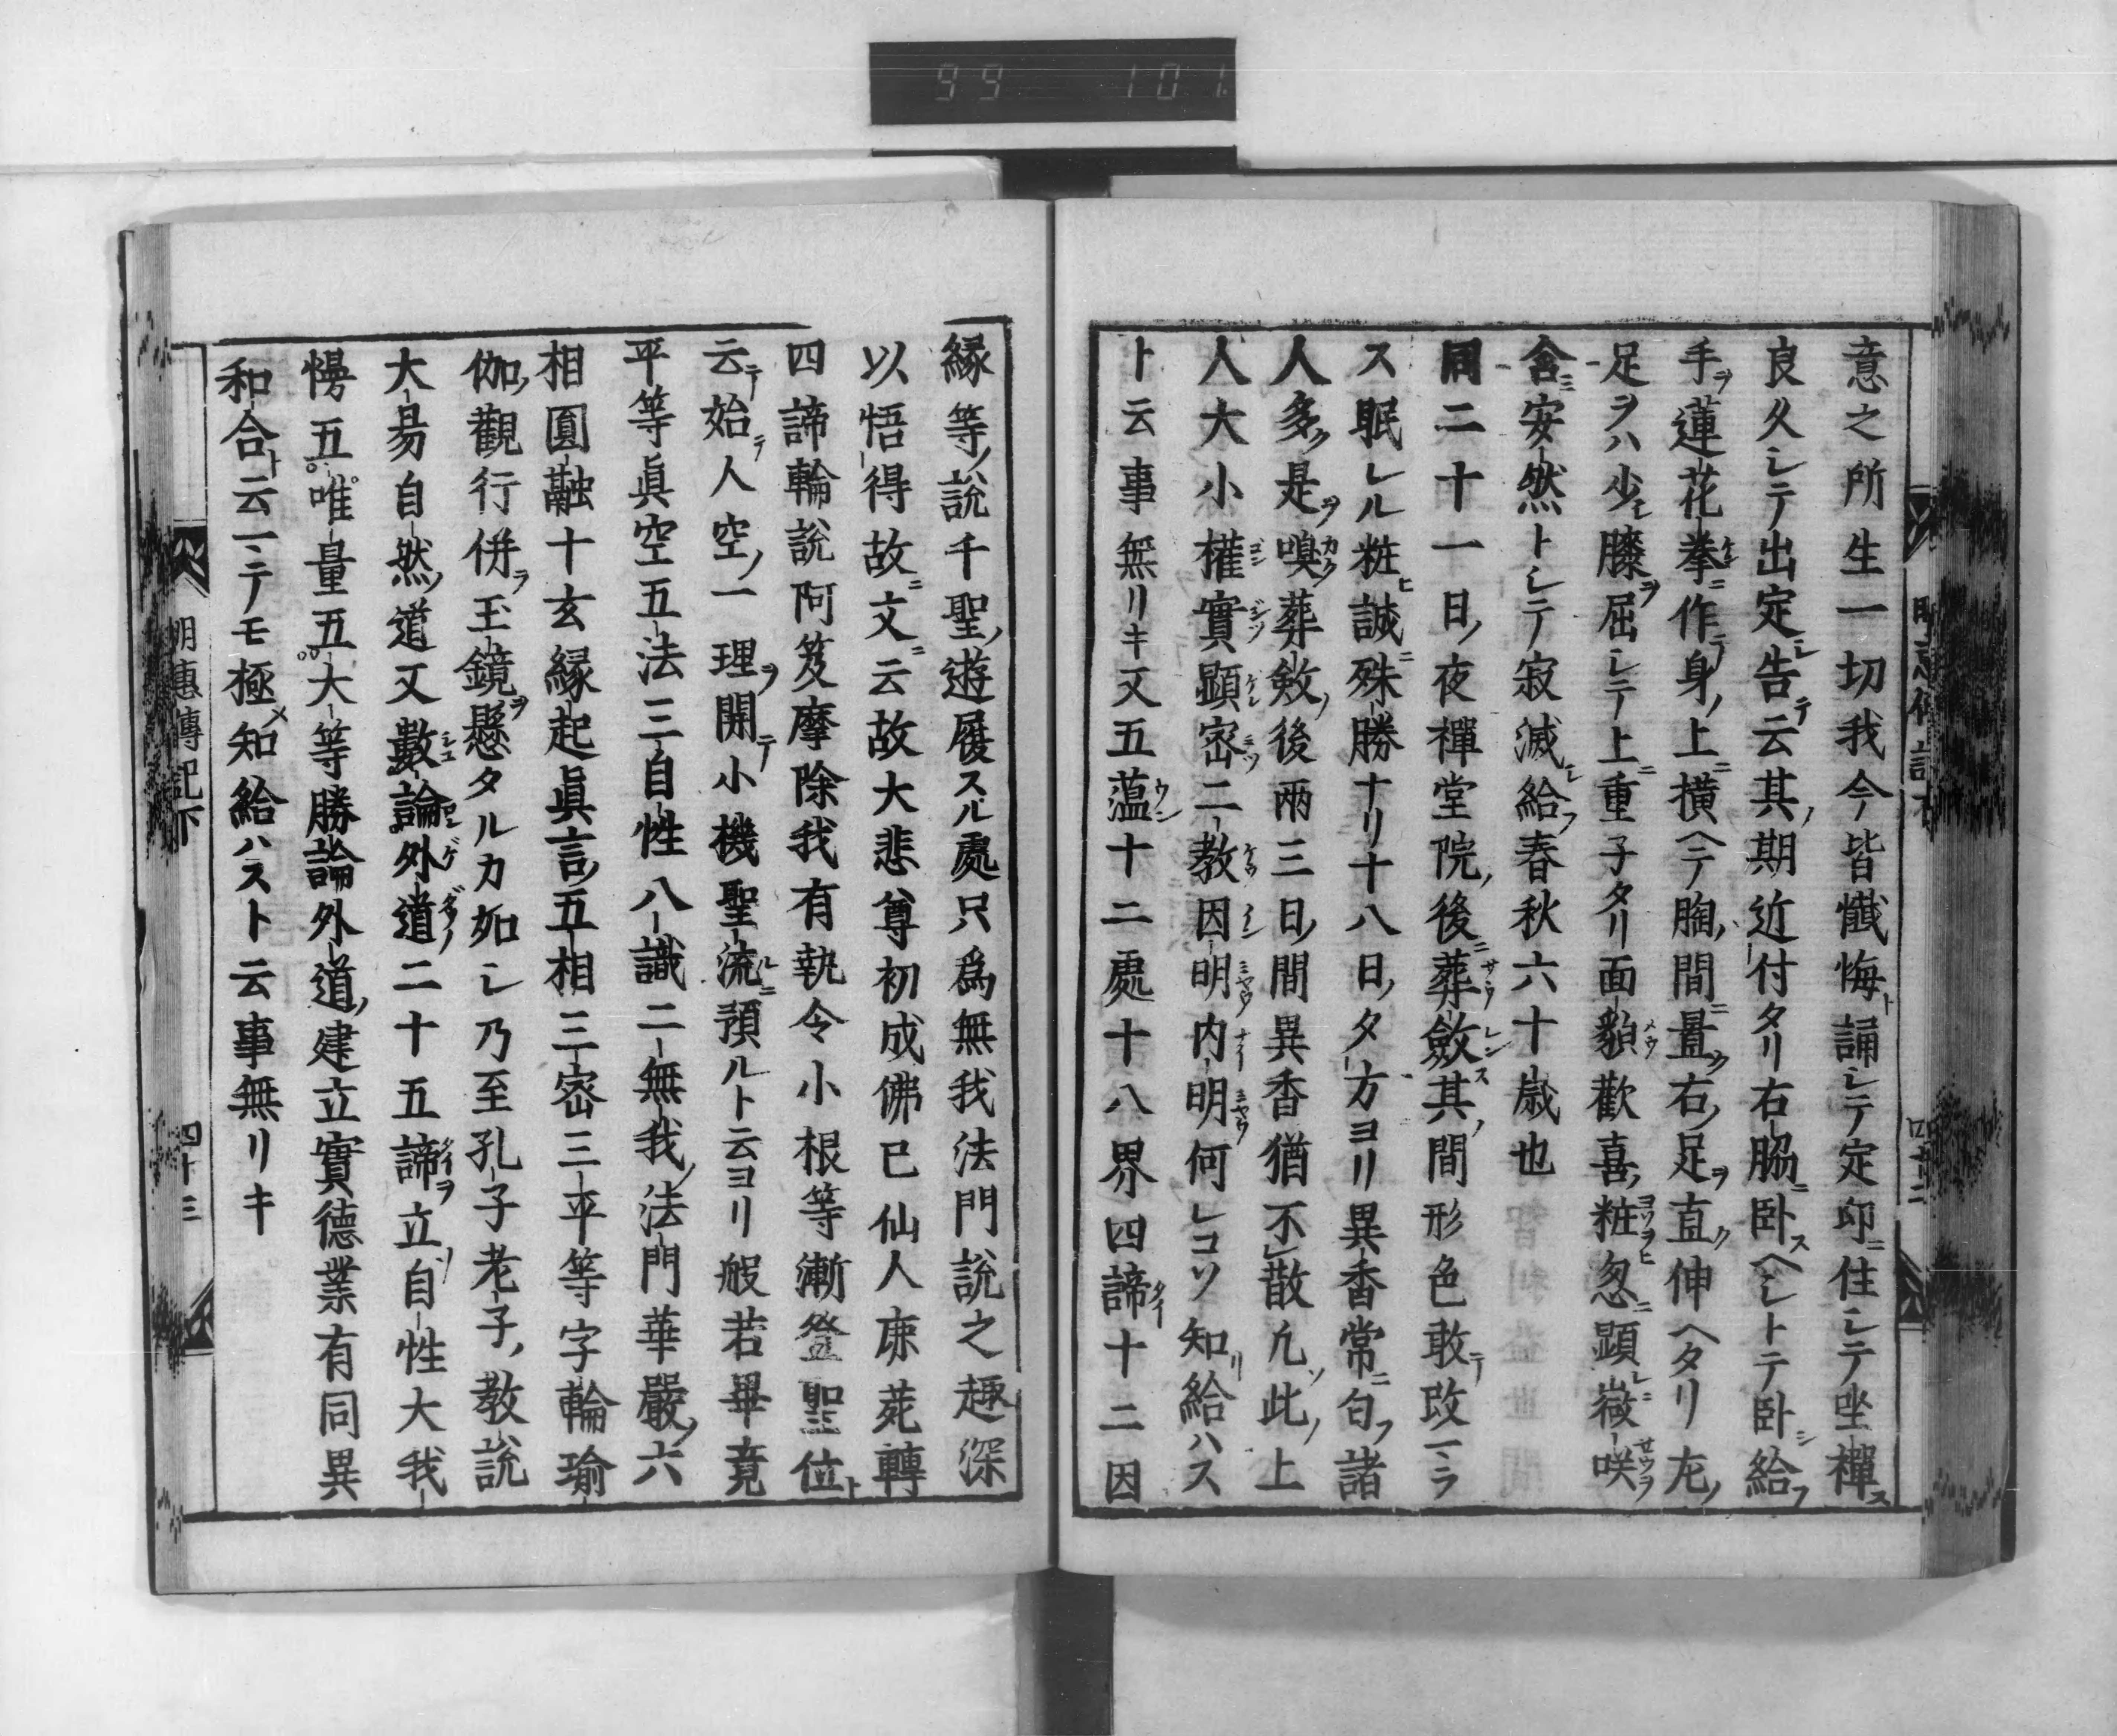 99 101
意之所生一切我今皆懺悔ト誦シテ定印ニ住シテ坐禪ス
良久シテ出定シ告テ云其ノ期近付タリ右脇ニ臥スヘシトテ臥シ給フ
手ヲ蓮花拳ニ作テ身ノ上ニ横ヘテ胸ノ間ニ置ク右ノ足ヲ直ク伸ヘタリ左ノ
足ヲハ少シ膝ヲ屈シテ上ニ重子タリ面貌歡喜ノ粧忽ニ顯レ微咲ヲ
含ミ安然トシテ寂滅シ給フ春秋六十歳也
同二十一日ノ夜禪堂院ノ後ニ葬斂ス其ノ間形色敢テ改ラ
ス眠レル粧ヒ誠ニ殊勝ナリ十八日ノ夕方ヨリ異香常ニ匂フ諸
人多ク是ヲ嗅ク葬斂ノ後兩三日ノ間異香猶不散凡ソ此ノ上
人大小權實顯密二教因明内明何レコソ知リ給ハス
ト云事無リキ又五薀十二處十八界四諦十二因
縁等ノ説千聖ノ遊履スル處只爲無我法門説之趣深
以悟得故ニ文ニ云故大悲尊初成佛已仙人鹿苑轉
四諦輪説阿笈摩除我有執令小根等漸登聖位ト
云テ始テ人空ノ一理ヲ開テ小機聖流ニ預ルト云ヨリ般若畢竟
平等眞空五法三自性八識二無我ノ法門華嚴ノ六
相圓融十玄縁起眞言ノ五相三密三平等字輪瑜
伽ノ觀行併ヲ玉鏡ヲ懸タルカ如シ乃至孔子老子ノ教説
大易自然ノ道又數論外道ノ二十五諦ヲ立自性大我
慢五唯量五大等勝論外道ノ建立實德業有同異
和合ト云ニテモ極メ知給ハスト云事無リキ
明惠傳記下
四十三